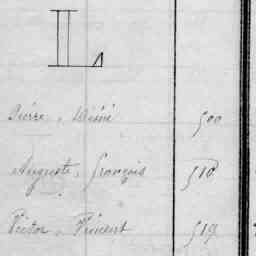 L
Pierre, Désiré 500
Auguste, François 510
Victor, Vincent 519